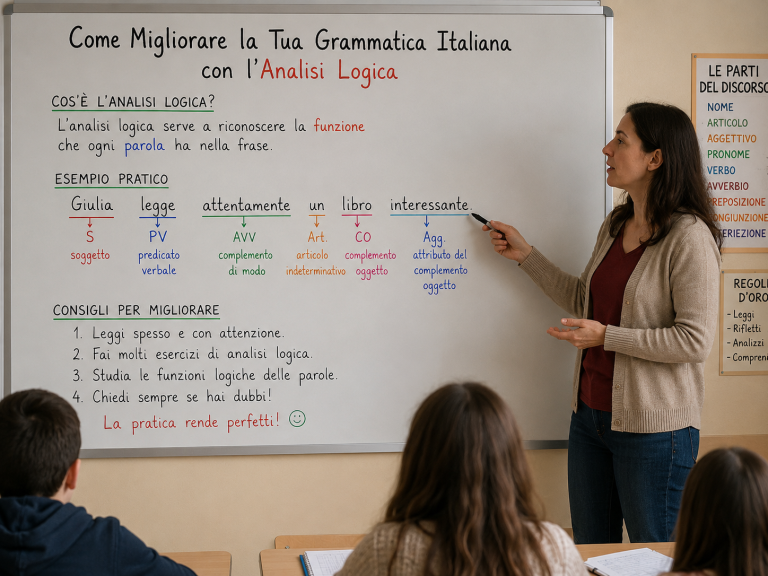 Come Migliorare la Tua Grammatica Italiana
con l'Analisi Logica
COS'È L'ANALISI LOGICA?
L'analisi logica serve a riconoscere la funzione
che ogni parola ha nella frase.
ESEMPIO PRATICO
Giulia legge attentamente un libro interessante.
S PV AVV Art. CO Agg.
soggetto predicato complemento articolo complemento attributo del
verbale di modo indeterminativo oggetto complemento
oggetto
CONSIGLI PER MIGLIORARE
1. Leggi spesso e con attenzione.
2. Fai molti esercizi di analisi logica.
3. Studia le funzioni logiche delle parole.
4. Chiedi sempre se hai dubbi!
La pratica rende perfetti!
LE PARTI
DEL DISCORSO
NOME
ARTICOLO
AGGETTIVO
PRONOME
VERBO
AVVERBIO
PREPOSIZIONE
CONGIUNZIONE
TERIEZIONE
REGOLE
D'ORO
- Leggi
- Rifletti
- Analizzi
- Compren